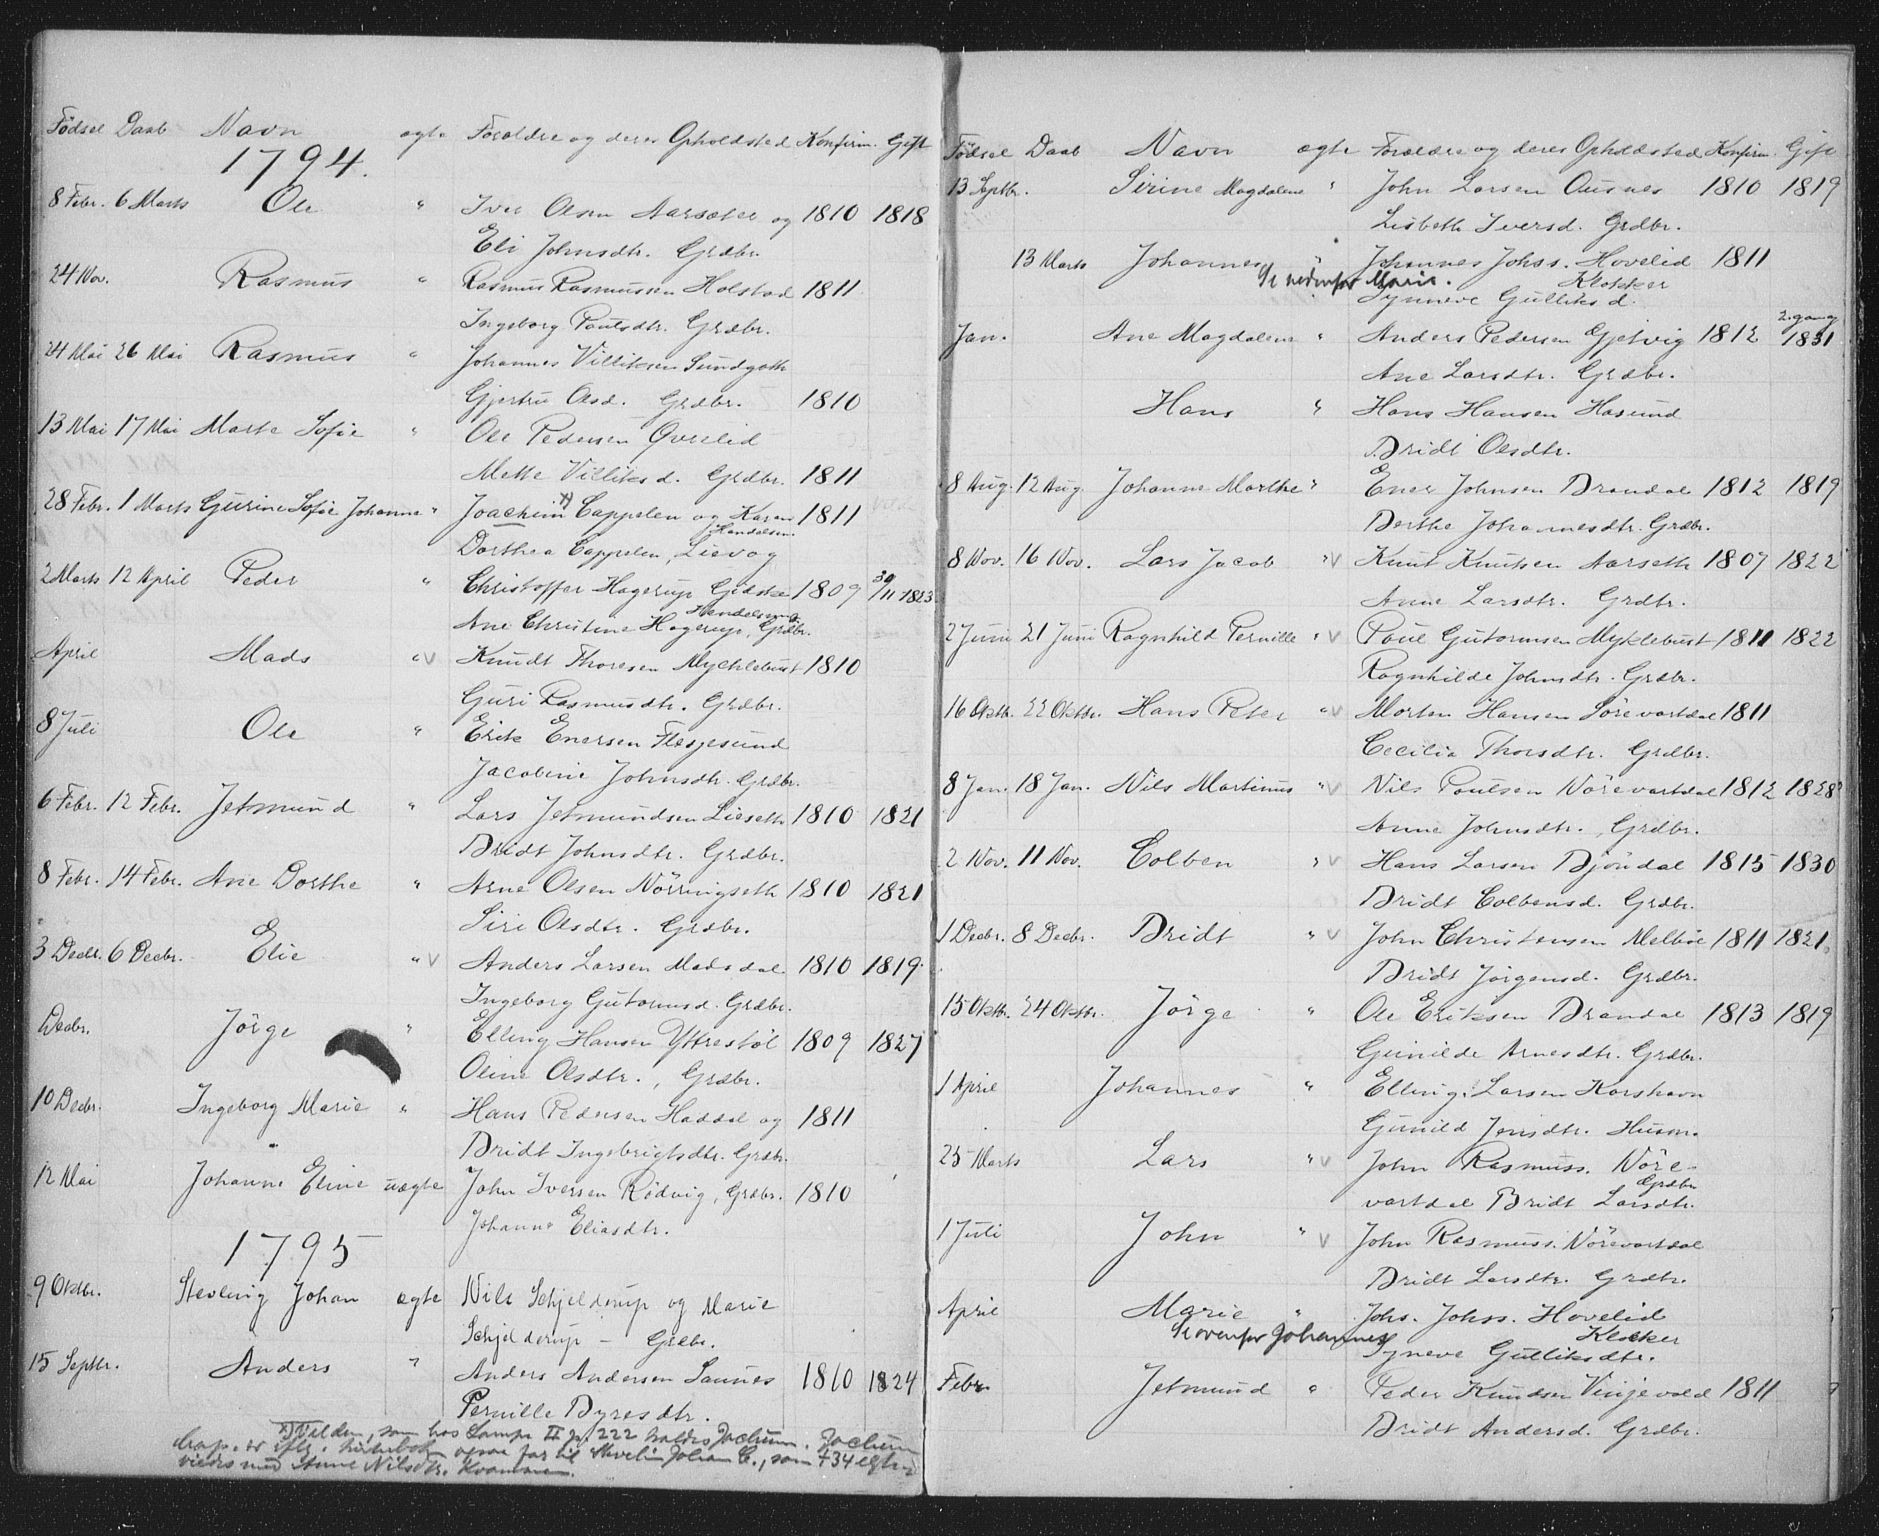 Fødsel Daab Navn ægte Forældre og deres Opholdsted Konfirm. Gift
1794.
8 Febr. 6 Marts Ole " Iver Olsen Aarsæter og 1810 1818
Eli Johnsdtr. Grdbr.
24 Nov. Rasmus " Rasmus Rasmussen Holstad 1811
Ingeborg Poulsdtr. Grdbr.
24 Mai 26 Mai Rasmus " Johannes Villiksen Sundgoth
Gjertru Olsd. Grdbr. 1810
13 Mai 17 Mai Marte Sofie " Ole Pedersen Øvrelid
Mette Villiksd. Grdbr. 1811
28 Febr. 1 Marts Gurine Sofie Johanne " Joachim x) Cappelen og Karen 1811
Handelsm.
Dorthea Cappelen, Lievog
2 Marts 12 April Peder " Christoffer Hagerup Gidske 1809 30/11 1823
Handelsmag
Ane Christine Hagerup, Grdbr.
April Mads " v Knudt Thoresen Mychlebust 1810
Guri Rasmusdtr. Grdbr.
8 Juli Ole " Erik Enersen Flesjesund
Jacobine Johnsdtr. Grdbr.
6 Febr. 12 Febr. Jetmund " Lars Jetmundsen Lieseth 1810 1821
Bridt Johnsdtr. Grdbr.
8 Febr. 14 Febr. Ane Dorthe " Arne Olsen Nörringseth 1810 1821
Siri Olsdtr. Grdbr.
3 Decbr. 6 Decbr. Elie " v Anders Larsen Madsdal 1810 1819
Ingeborg Gutormsd. Grdbr.
Decbr. Jörge " Elling Hansen Yttrestöl 1809 1827
Oline Olsdtr., Grdbr.
10 Decbr. Ingeborg Marie " Hans Pedersen Haddal og 1811
Bridt Ingebrigtsdtr. Grdbr.
12 Mai Johanne Eline uægte John Iversen Rödvig, Grdbr. 1810
Johanne Eliasdtr.
1795
9 Oktbr. Stevling Johan ægte Nils Schjelderup og Marie
Schjelderup - Grdbr.
15 Septbr. Anders " Anders Andersen Saunes 1810 1824
Pernille Dyresdtr.
x) Vilden, som hos Lampe II p. 222 kaldes Jochum. Jochum
Cap. er iflg. kirkebok ogsaa far til Stevelin Johan C., som
viedes med Anne Nilsdtr. Kvammen.
Fødsel Daab Navn ægte Forældre og deres Opholdsted Konfirm. Gift
13 Septbr. Sirine Magdalene " John Larsen Ousnes 1810 1819
Lisbeth Iversd. Grdbr.
13 Marts Johannes " Johannes Johss. Hovelid 1811
Se nedenfor Marie. Klokker
Synneve Gulliksd.
2. gang
Jan. Ane Magdalene " Anders Pedersen Gjetvig 1812 1831
Ane Larsdtr. Grdbr.
Hans " Hans Hansen Hasund
Bridt Olsdtr.
8 Aug. 12 Aug. Johanne Marthe " Ener Johnsen Brandal 1812 1819
Berthe Johannesdtr. Grdbr.
8 Nov. 16 Nov. Lars Jacob " v Knut Knutsen Aarseth 1807 1822
Anne Larsdtr. Grdbr.
2 Juni 21 Juni Ragnhild Pernille " v Poul Gutormsen Myklebust 1811 1822
Ragnhilde Johnsdtr. Grdbr.
16 Oktb. 22 Oktbr. Hans Peter " v Morten Hansen Sörevartdal 1811
Cecilia Thorsdtr. Grdbr.
8 Jan. 18 Jan. Nils Martinus " v Nils Poulsen Nörevartdal 1812 1828
Anne Johnsdtr., Grdbr.
2 Nov. 11 Nov. Colben " v Hans Larsen Björdal 1815 1830
Bridt Colbensd. Grdbr.
1 Decbr. 8 Decbr. Bridt " v John Christensen Melböe 1811 1821
Bridt Jörgensd. Grdbr.
15 Oktb. 24 Oktbr. Jörge " Ole Eriksen Brandal 1813 1819
Gunilde Arnesdtr. Grdbr.
1 April Johannes " Elling Larsen Korshavn
Gunild Jensdtr. Husm.
25 Marts Lars " v John Rasmuss. Nöre-
Grdbr
vartdal Bridt Larsdtr.
1 Juli John " v John Rasmuss. Nörevartdal
Bridt Larsdtr. Grdbr.
April Marie " Johs. Johss. Hovelid
Se ovenfor Johannes Klokker
Syneve Gulliksdtr.
Febr. Jetmund " Peder Knudsen Vinjevold 1811
Bridt Andersd. Grdbr.